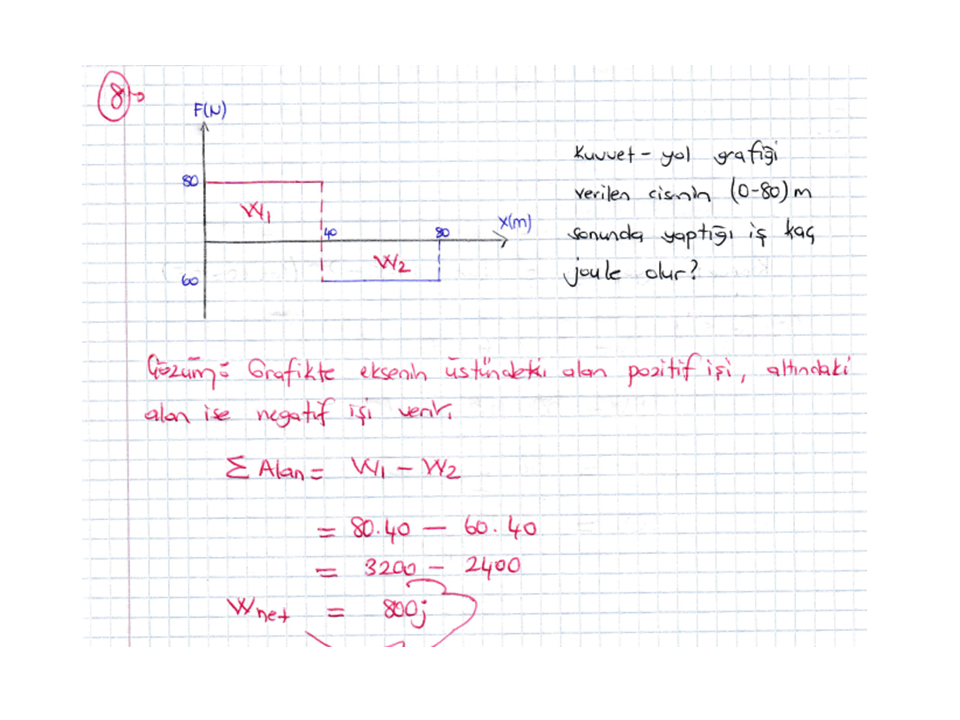 8
F(N)
80
W1
40
80
X(m)
W2
60
Kuvvet - yol grafiği
verilen cismin (0-80) m
sonunda yaptığı iş kaç
joule olur?
Çözüm: Grafikte eksenin üstündeki alan pozitif işi, altındaki
alan ise negatif işi verir.
Σ Alan = W1 - W2
= 80.40 - 60.40
= 3200 - 2400
Wnet = 800j